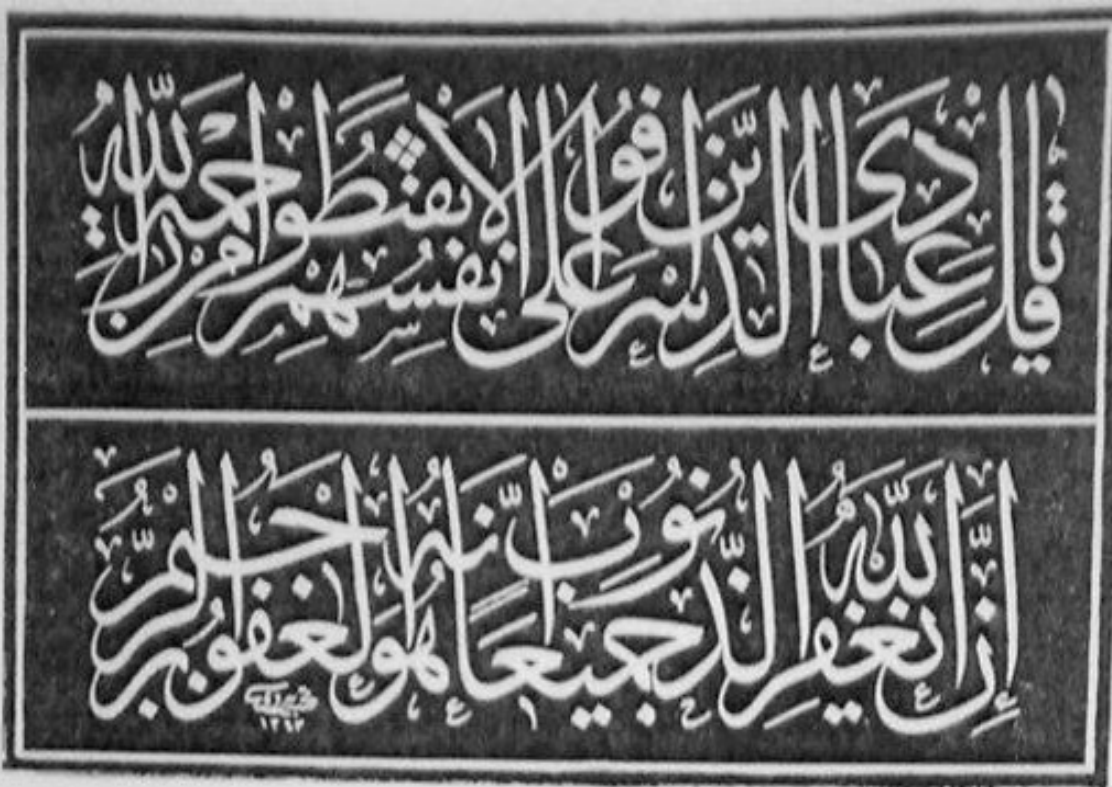 قُلْ يَا عِبَادِيَ الَّذِينَ أَسْرَفُوا عَلَى أَنْفُسِهِمْ لَا تَقْنَطُوا مِنْ رَحْمَةِ اللَّهِ
إِنَّ اللَّهَ يَغْفِرُ الذُّنُوبَ جَمِيعًا إِنَّهُ هُوَ الْغَفُورُ الرَّحِيمُ